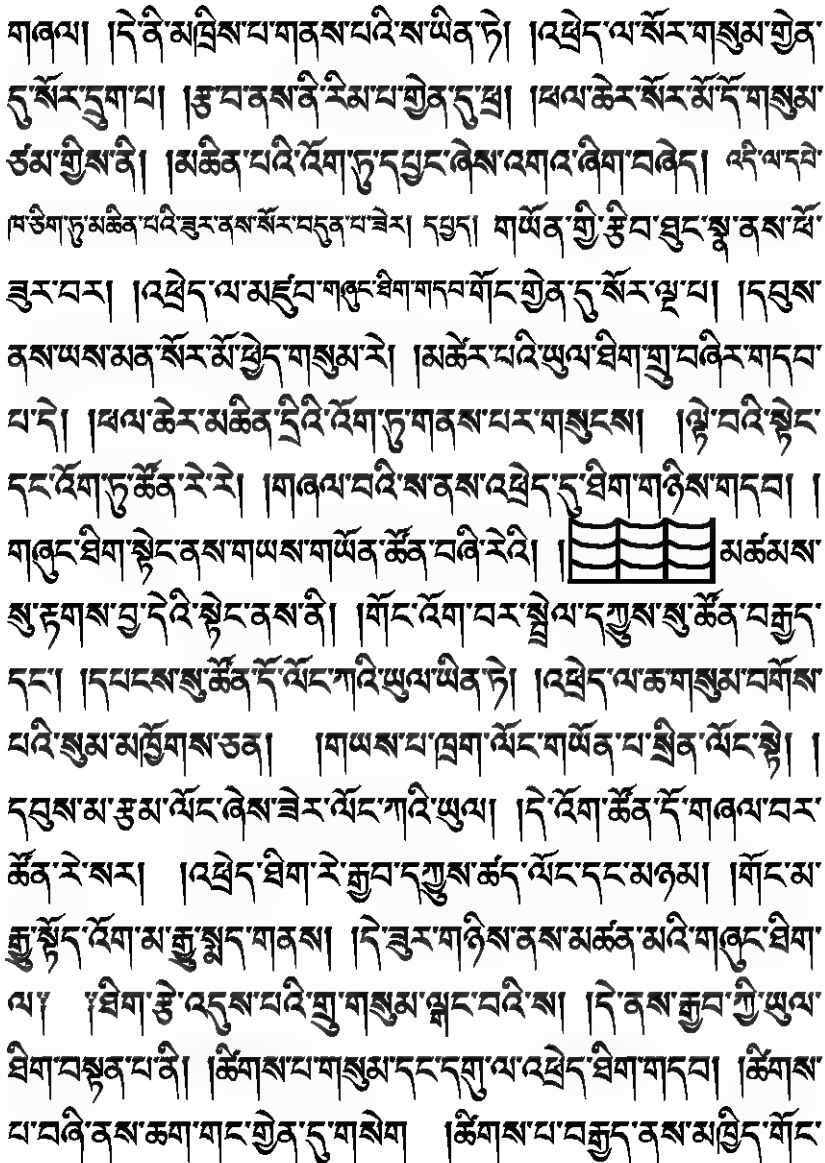 གཞལ། །དེ་ནི་མཁྲིས་པ་གནས་པའི་ས་ཡིན་ཏེ། །འཕྲེད་ལ་སོར་གསུམ་གྱེན་
དུ་སོར་དྲུག་པ། །རྩ་བ་ནས་ནི་རིམ་པ་གྱེན་དུ་ཕྲ། །ཕལ་ཆེར་སོར་མོ་དོ་གསུམ་
ཙམ་གྱིས་ནི། །མཆིན་པའི་འོག་ཏུ་དཔྱང་ཞེས་འགའ་ཞིག་བཞེད། འདི་ལ་དཔེ་
ཁ་ཅིག་ཏུ་མཆིན་པའི་ཟུར་ནས་སོར་བདུན་པ་ཟེར། དཔྱད། གཡོན་གྱི་རྩིབ་ཐུང་སྣ་ནས་ཕོ་
ཟུར་བར། །འཕྲེད་ལ་མཛུབ་གཞུང་ཐིག་གདབ་གོང་གྱེན་དུ་སོར་ལྔ་པ། །དབུས་
ནས་ཡས་མན་སོར་མོ་ཕྱེད་གསུམ་རེ། །མཚེར་པའི་ཡུལ་ཐིག་གྲུ་བཞིར་གདབ་
པ་དེ། །ཕལ་ཆེར་མཆིན་དྲིའི་འོག་ཏུ་གནས་པར་གསུངས། །ལྟེ་བའི་སྟེང་
དང་འོག་ཏུ་ཚོན་རེ་རེ། །གཞལ་བའི་ས་ནས་འཕྲེད་དུ་ཐིག་གཉིས་གདབ། །
གཞུང་ཐིག་སྟེང་ནས་གཡས་གཡོན་ཚོན་བཞི་རེའི། །མཚམས་
སུ་རྟགས་བྱ་དེའི་སྟེང་ནས་ནི། །གོང་འོག་བར་སྦྲེལ་དཀྱུས་སུ་ཚོན་བརྒྱད་
དང་། །དཔངས་སུ་ཚོན་དོ་ལོང་ཀའི་ཡུལ་ཡིན་ཏེ། །འཕྲེད་ལ་ཆ་གསུམ་བགོས་
པའི་སུམ་མཁྱོགས་ཅན། །གཡས་པ་ཁྲག་ལོང་གཡོན་པ་སྲིན་ལོང་སྟེ། །
དབུས་མ་རྩམ་ལོང་ཞེས་ཟེར་ལོང་ཀའི་ཡུལ། །དེ་འོག་ཚོན་དོ་གཞལ་བར་
ཚོན་རེ་སར། །འཕྲེད་ཐིག་རེ་རྒྱབ་དཀྱུས་ཚད་ལོང་དང་མཉམ། །གོང་མ་
རྒྱུ་སྟོད་འོག་མ་རྒྱུ་སྨད་གནས། །དེ་ཟུར་གཉིས་ནས་མཚན་མའི་གཞུང་ཐིག་
ལ༑ ༑ཐིག་རྩེ་འདུས་པའི་གྲུ་གསུམ་ལྒང་བའི་ས། །དེ་ནས་རྒྱབ་ཀྱི་ཡུལ་
ཐིག་བསྟན་པ་ནི། །ཚིགས་པ་གསུམ་དང་དགུ་ལ་འཕྲེད་ཐིག་གདབ། །ཚིགས་
པ་བཞི་ནས་ཆག་གང་གྱེན་དུ་གསེག །ཚིགས་པ་བརྒྱད་ནས་མཁྱིད་གོང་